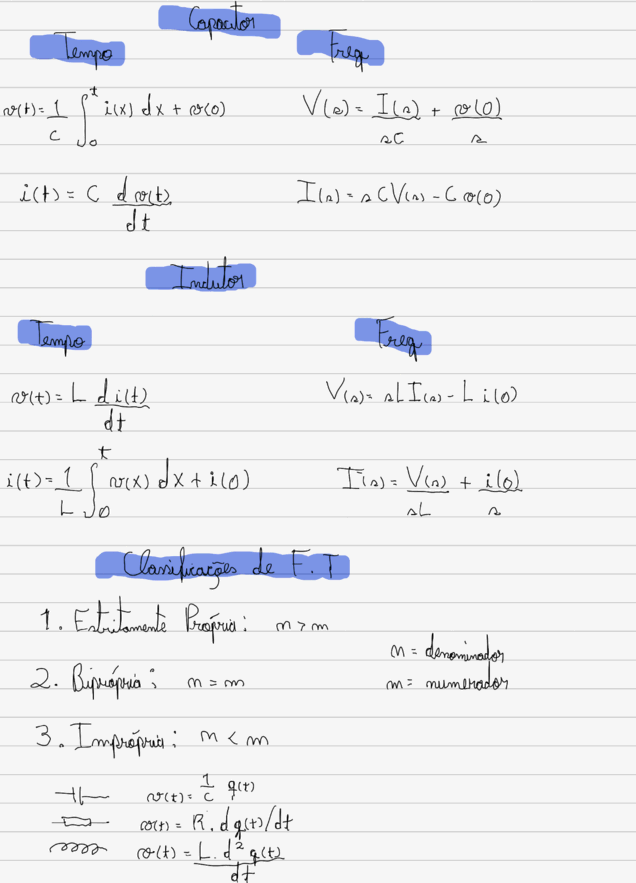 Capacitor
Tempo Freq
v(t) = 1/C ∫₀ᵗ i(x) dx + v(0) V(s) = I(s)/sC + v(0)/s
i(t) = C d v(t)/dt I(s) = s C V(s) - C v(0)
Indutor
Tempo Freq
v(t) = L d i(t)/dt V(s) = sL I(s) - L i(0)
i(t) = 1/L ∫₀ᵗ v(x) dx + i(0) I(s) = V(s)/sL + i(0)/s
Classificações de F.T
1. Estritamente Própria: n > m
n = denominador
2. Biprópria: n = m m = numerador
3. Imprópria: n < m
v(t) = 1/C q(t)
v(t) = R. d q(t)/dt
v(t) = L. d² q(t)/dt